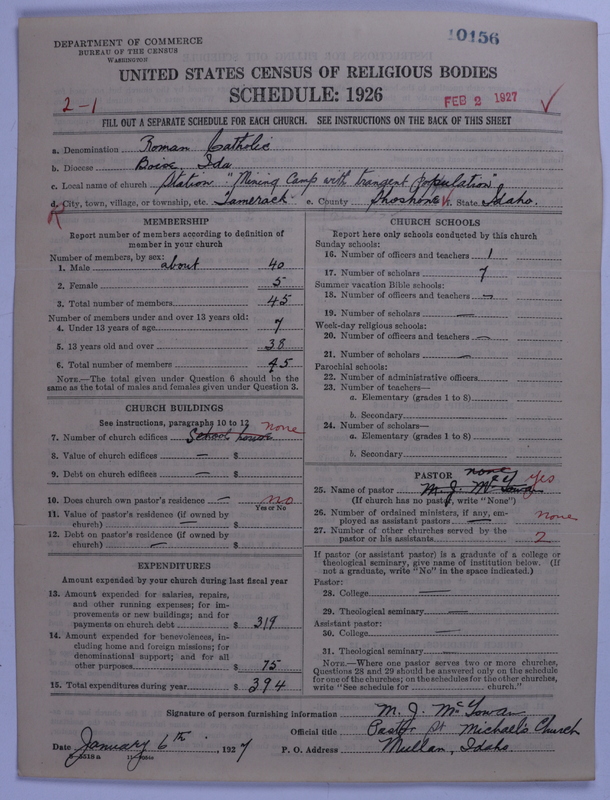 DEPARTMENT OF COMMERCE
BUREAU OF THE CENSUS
WASHINGTON
10156
UNITED STATES CENSUS OF RELIGIOUS BODIES
SCHEDULE: 1926
2-1
FEB 2 1927
FILL OUT A SEPARATE SCHEDULE FOR EACH CHURCH. SEE INSTRUCTIONS ON THE BACK OF THIS SHEET
a. Denomination Roman Catholic
b. Diocese Boise, Ida
c. Local name of church Station "Mining Camp with trangent population"
d. City, town, village, or township, etc. Tamerack e. County Shoshone f. State Idaho.
MEMBERSHIP
Report number of members according to definition of
member in your church
Number of members, by sex:
1. Male about 40
2. Female 5
3. Total number of members 45
Number of members under and over 13 years old:
4. Under 13 years of age 7
5. 13 years old and over 38
6. Total number of members 45
NOTE.—The total given under Question 6 should be the
same as the total of males and females given under Question 3.
CHURCH BUILDINGS
See instructions, paragraphs 10 to 12 none
7. Number of church edifices School house
8. Value of church edifices — $
9. Debt on church edifices — $
10. Does church own pastor's residence — no
Yes or No
11. Value of pastor's residence (if owned by
church) — $
12. Debt on pastor's residence (if owned by
church) — $
EXPENDITURES
Amount expended by your church during last fiscal year
13. Amount expended for salaries, repairs,
and other running expenses; for im-
provements or new buildings; and for
payments on church debt $ 319
14. Amount expended for benevolences, in-
cluding home and foreign missions; for
denominational support; and for all
other purposes $ 75
15. Total expenditures during year $ 394
CHURCH SCHOOLS
Report here only schools conducted by this church
Sunday schools:
16. Number of officers and teachers 1
17. Number of scholars 7
Summer vacation Bible schools:
18. Number of officers and teachers —
19. Number of scholars —
Week-day religious schools:
20. Number of officers and teachers —
21. Number of scholars —
Parochial schools:
22. Number of administrative officers
23. Number of teachers—
a. Elementary (grades 1 to 8)
b. Secondary
24. Number of scholars—
a. Elementary (grades 1 to 8)
b. Secondary
PASTOR none
25. Name of pastor M. J. McGowan yes
(If church has no pastor, write "None")
26. Number of ordained ministers, if any, em-
ployed as assistant pastors — none
27. Number of other churches served by the
pastor or his assistants 2
If pastor (or assistant pastor) is a graduate of a college or
theological seminary, give name of institution below. (If
not a graduate, write "No" in the space indicated.)
Pastor:
28. College —
29. Theological seminary —
Assistant pastor:
30. College —
31. Theological seminary —
NOTE.—Where one pastor serves two or more churches,
Questions 28 and 29 should be answered only on the schedule
for one of the churches; on the schedules for the other churches,
write "See schedule for church."
Signature of person furnishing information M. J. McGowan
Official title Pastor St Michael's Church
Date January 6th, 1927 P. O. Address Mullan, Idaho